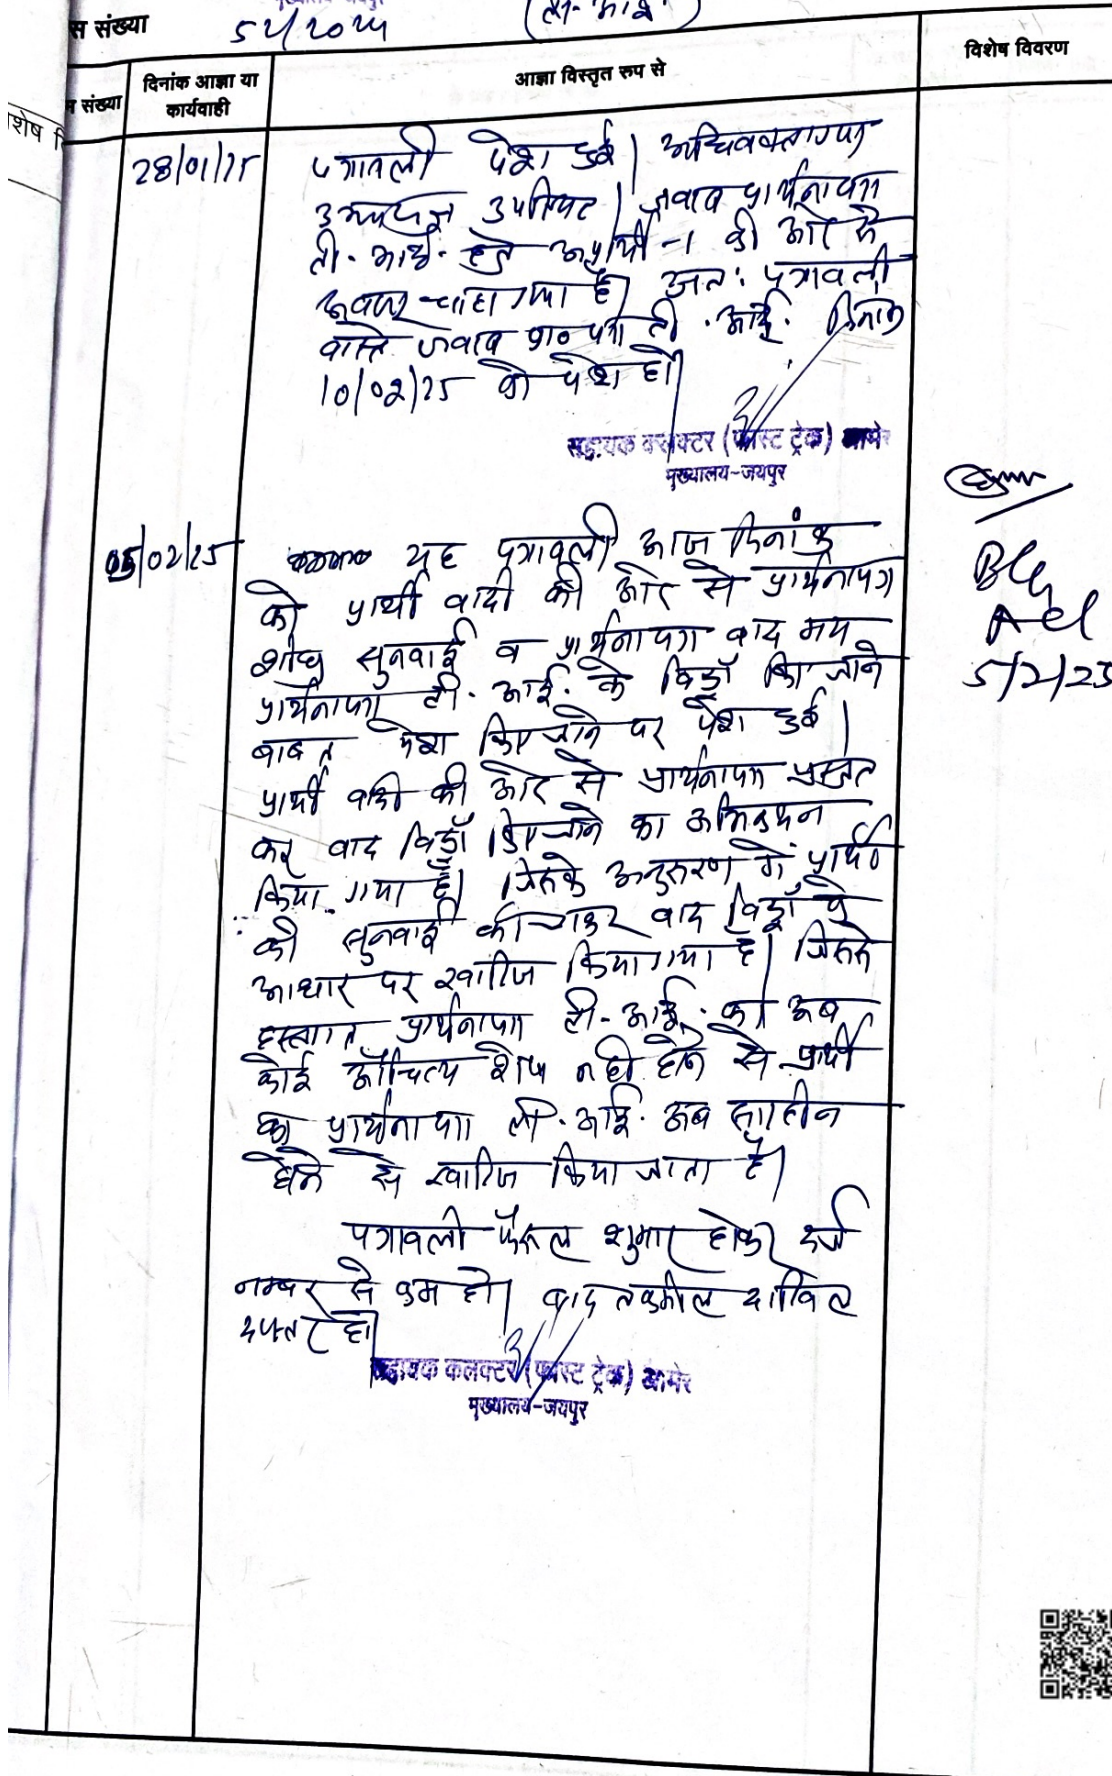 स संख्या 54/2024 (टी. आई.)
स संख्या दिनांक आज्ञा या कार्यवाही आज्ञा विस्तृत रुप से विशेष विवरण
28/01/25 पत्रावली पेश हुई। अधिवक्तागण
उभयपक्ष उपस्थित। जवाब प्रार्थनापत्र
टी. आई. हेतु अप्रार्थी-1 की ओर से
अवसर चाहा गया है। अतः पत्रावली
वास्ते जवाब प्रा० पत्र टी. आई. दिनांक
10/02/25 को पेश हो।
सहायक कलक्टर (फास्ट ट्रेक) आमेर
मुख्यालय-जयपुर
05/02/25 यह पत्रावली आज दिनांक
को प्रार्थी वादी की ओर से प्रार्थनापत्र
शीघ्र सुनवाई व प्रार्थनापत्र वाद मय
प्रार्थनापत्र टी. आई. के विड्रॉ किए जाने
बाबत पेश किए जाने पर पेश हुई।
प्रार्थी वादी की ओर से प्रार्थनापत्र प्रस्तुत
कर वाद विड्रॉ किए जाने का अभिकथन
किया गया है। जिसके अनुसरण में प्रार्थी
की सुनवाई की जाकर वाद विड्रॉ के
आधार पर खारिज किया गया है। जिससे
हस्तगत प्रार्थनापत्र टी. आई. का अब
कोई औचित्य शेष नहीं होने से प्रार्थी
का प्रार्थनापत्र टी. आई. अब सारहीन
होने से खारिज किया जाता है।
पत्रावली फैसल शुमार होकर दर्ज
नम्बर से कम हो। बाद तकमील दाखिल
दफ्तर हो।
सहायक कलक्टर (फास्ट ट्रेक) आमेर
मुख्यालय-जयपुर
5/2/25